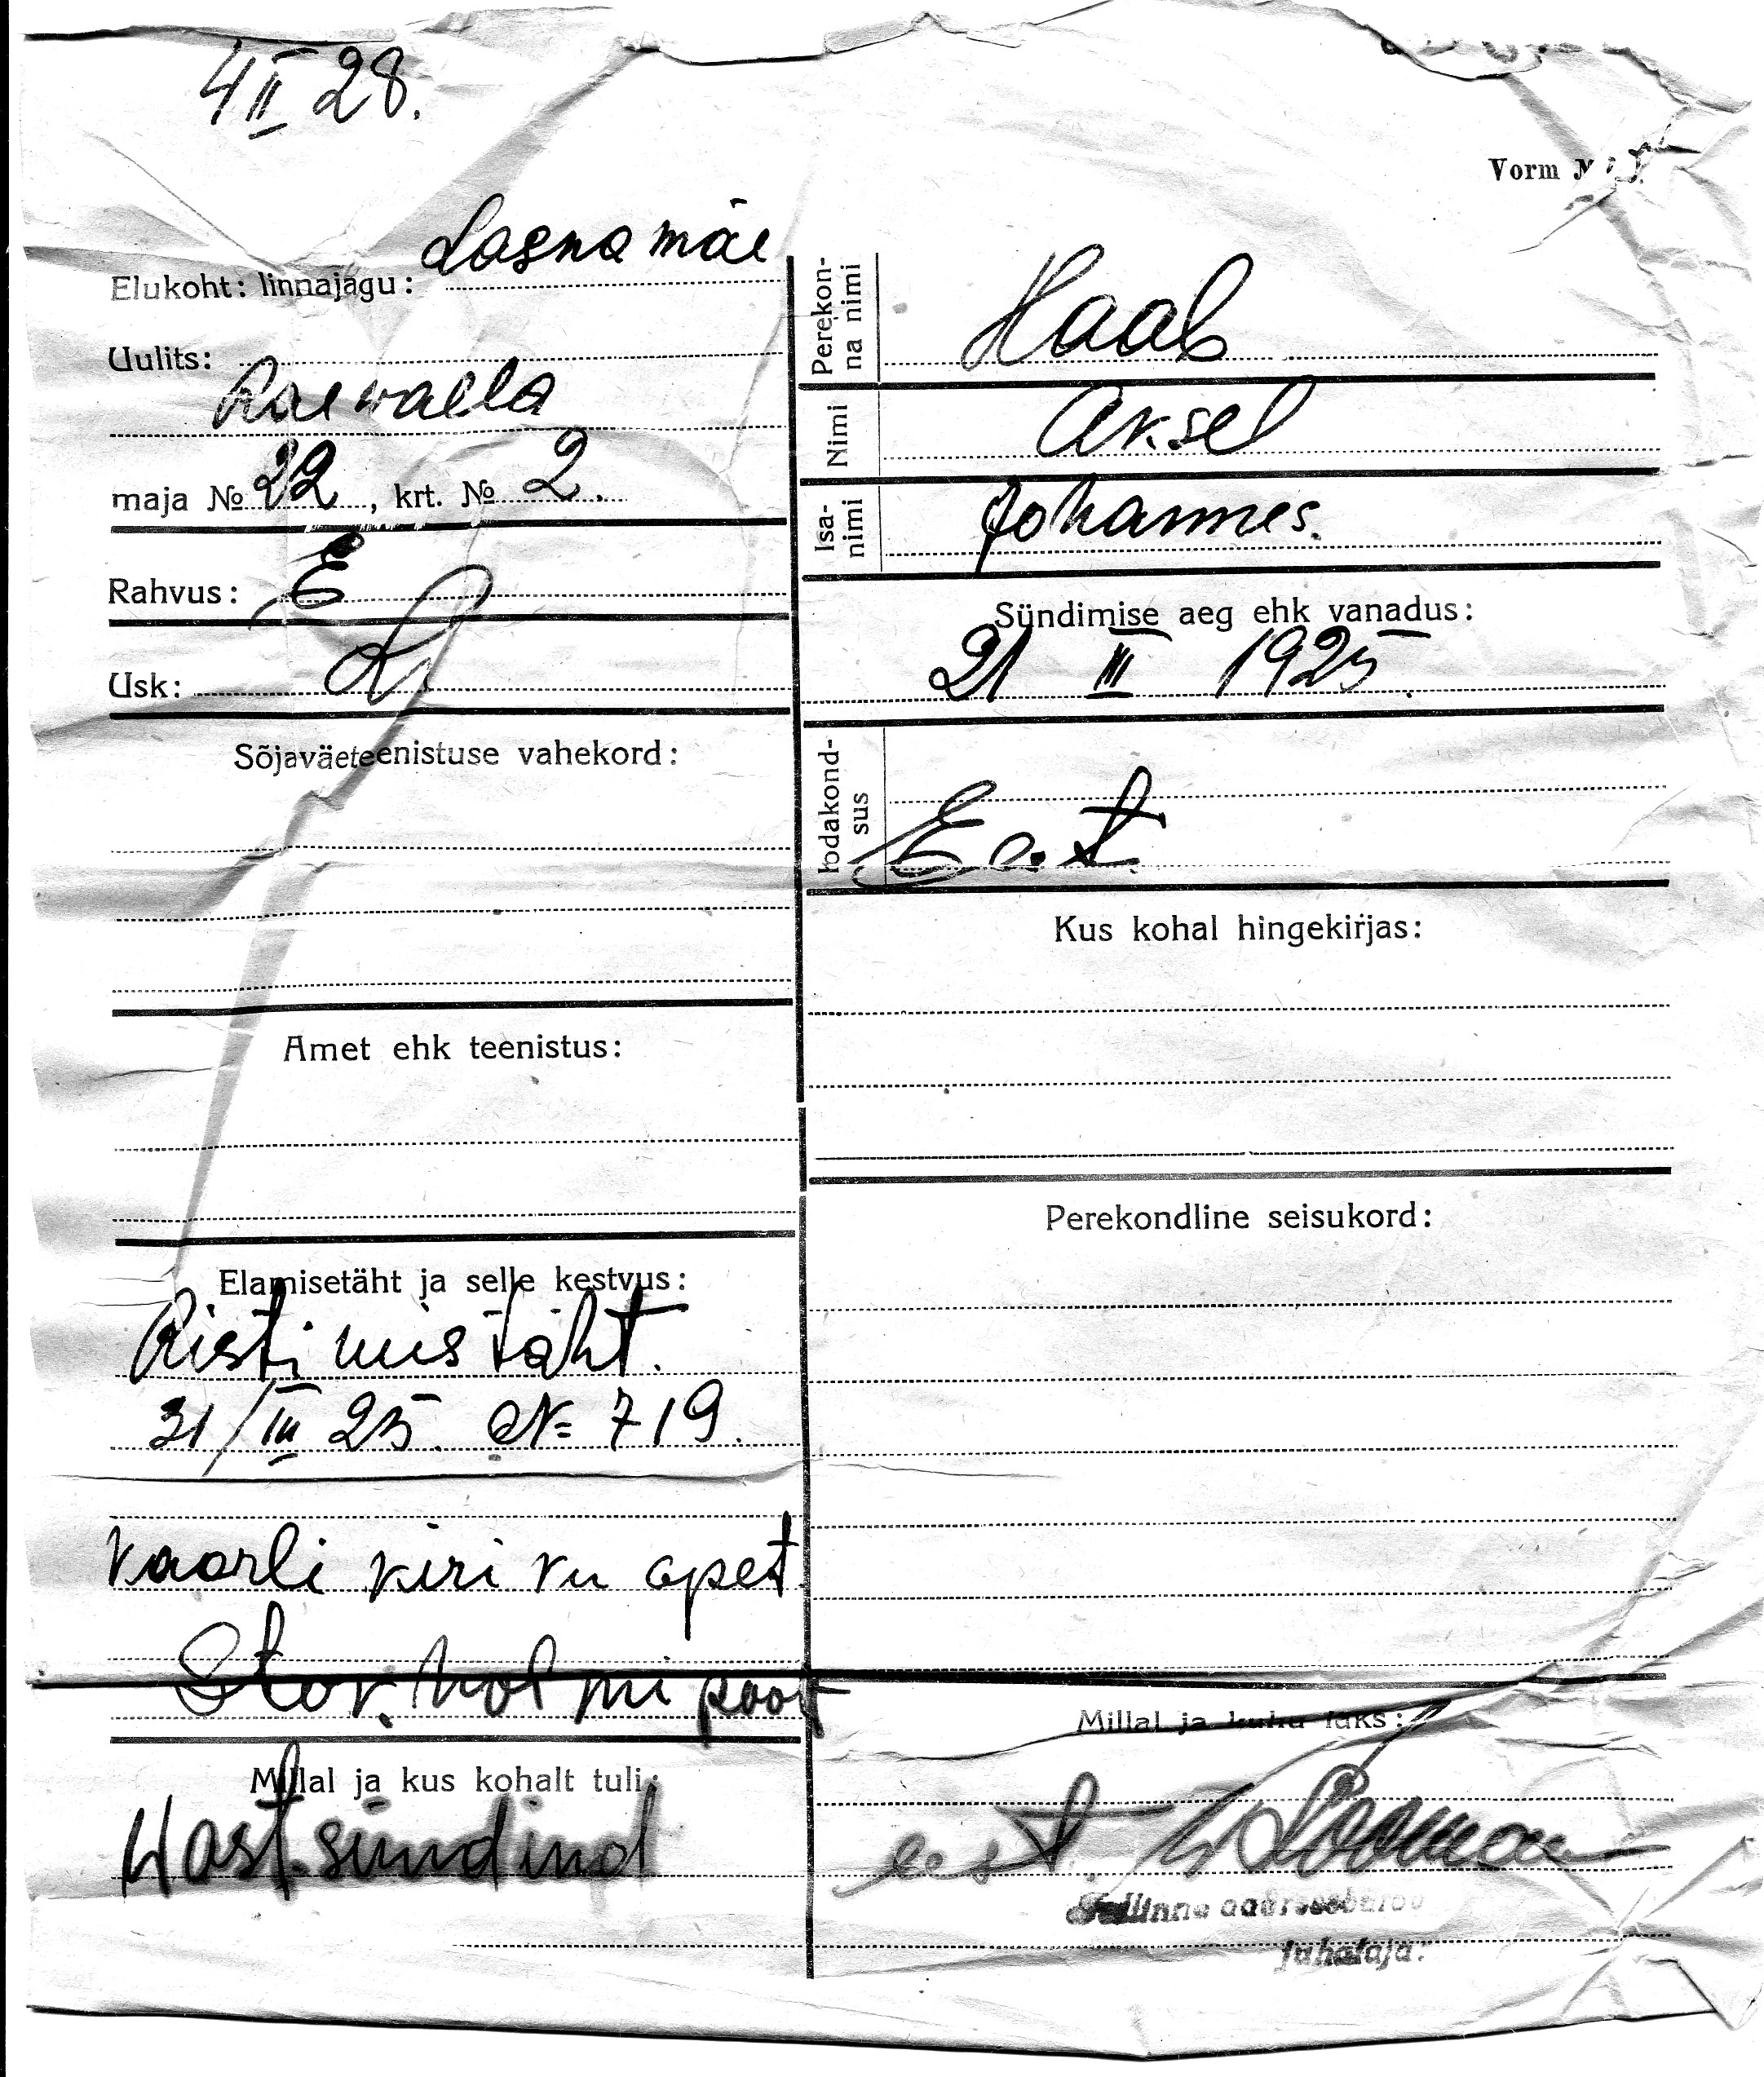 4 II 28.
Vorm №
Elukoht: linnajagu: Lasnamäe
Uulits:
Raewalla
maja № 22, krt. № 2.
Rahvus: E
Usk: L
Sõjaväeteenistuse vahekord:
Amet ehk teenistus:
Elamisetäht ja selle kestvus:
Ristimistäht.
31/III 25. № 719.
Kaarli kiriku õpet.
Stokholmi poolt
Millal ja kus kohalt tuli:
Wastsündind
Perekon-
na nimi
Haab
Nimi
Aksel
Isa-
nimi
Johannes.
Sündimise aeg ehk vanadus:
21 III 1925.
Kodakond-
sus
Eest
Kus kohal hingekirjas:
Perekondline seisukord:
Millal ja kuhu läks:
eest
Tallinna aadressbüroo
juhataja: